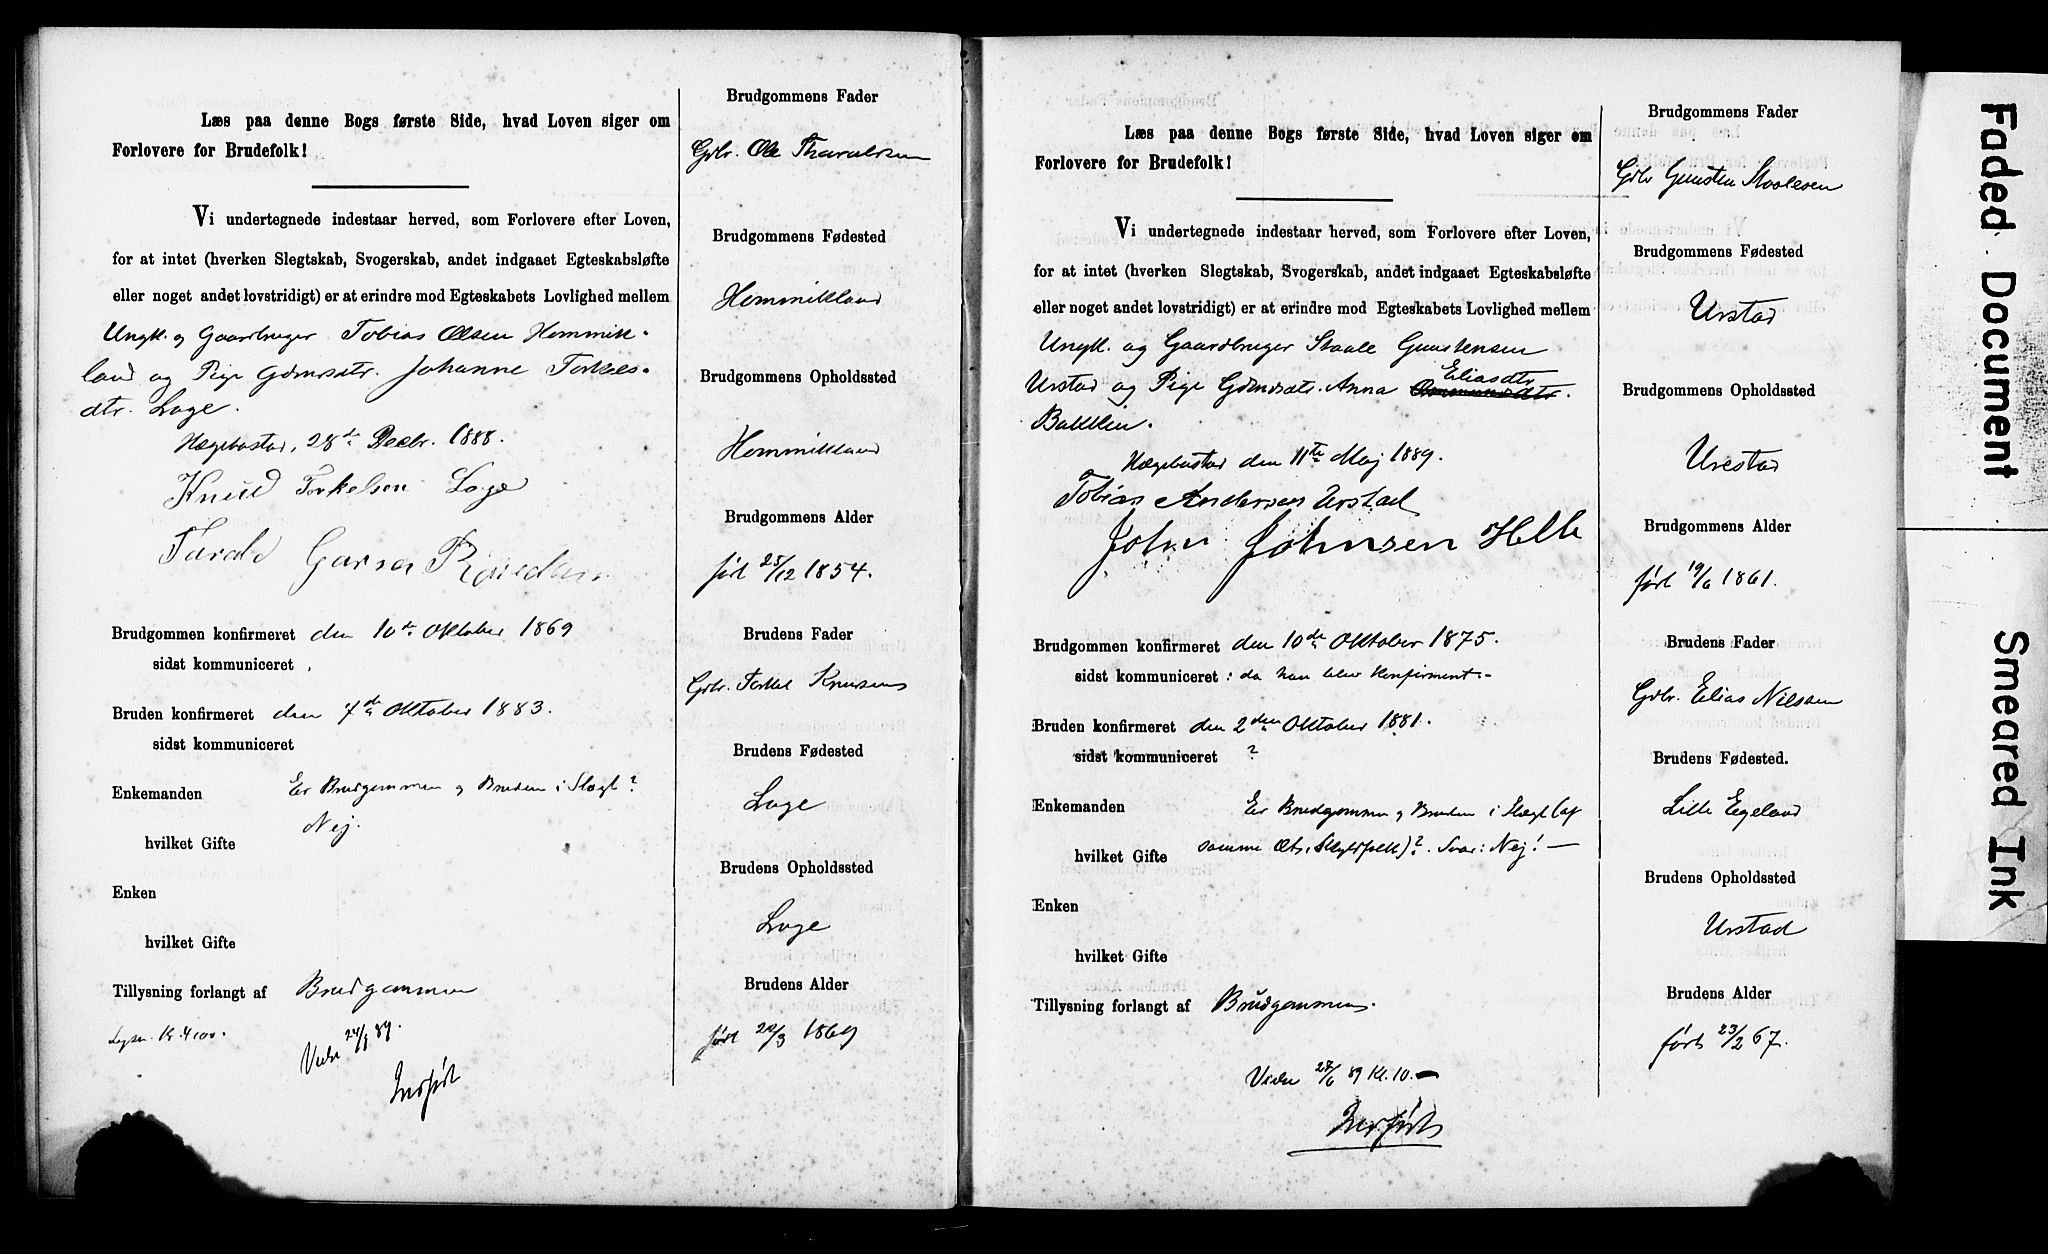 Læs paa denne Bogs første Side, hvad Loven siger om
Forlovere for Brudefolk!
Vi undertegnede indestaar herved, som Forlovere efter Loven,
for at intet (hverken Slegtskab, Svogerskab, andet indgaaet Egteskabsløfte
eller noget andet lovstridigt) er at erindre mod Egteskabets Lovlighed mellem
Ungk. og Gaardbruger Tobias Olsen Hommik-
land og Pige Gdmdsdtr. Johanne Torkels-
dtr. Loge.
Hægebostad, 28de Decbr. 1888.
Knud Torkelsen Loge
Tarald
Brudgommen konfirmeret den 10de Oktober 1869
sidst kommuniceret
Bruden konfirmeret den 7de Oktober 1883.
sidst kommuniceret
Enkemanden Er Brudgommen og Bruden i Slægt?
Nej.
hvilket Gifte
Enken
hvilket Gifte
Tillysning forlangt af Brudgommen
Viede 24/1 89.
Indført
Brudgommens Fader
Gbr. Ole Tharaldsen
Brudgommens Fødested
Hommikland
Brudgommens Opholdssted
Hommikland
Brudgommens Alder
født 25/12 1854.
Brudens Fader
Gbr. Torkel Knudsen
Brudens Fødested
Loge
Brudens Opholdssted
Loge
Brudens Alder
født 20/3 1869
Læs paa denne Bogs første Side, hvad Loven siger om
Forlovere for Brudefolk!
Vi undertegnede indestaar herved, som Forlovere efter Loven,
for at intet (hverken Slegtskab, Svogerskab, andet indgaaet Egteskabsløfte
eller noget andet lovstridigt) er at erindre mod Egteskabets Lovlighed mellem
Ungk. og Gaardbruger Staale Gunstensen
Urstad og Pige Gdmdsdtr. Anna Eliasdtr.
Bakklin.
Hægebostad den 11te Maj 1889.
Tobias Andersen Urstad
John Johnsen Helle
Brudgommen konfirmeret den 10de Oktober 1875.
sidst kommuniceret: da han blev konfirmeret.-
Bruden konfirmeret den 2den Oktober 1881.
sidst kommuniceret ?
Enkemanden Er Brudgommen og Bruden i Slægt (af
samme Æt, Slægtsfolk)? Svar: Nej! —
hvilket Gifte
Enken
hvilket Gifte
Tillysning forlangt af Brudgommen.
Viede 27/6 89 Kl. 10.—
Indført
Brudgommens Fader
Gbr Gunsten Staalesen
Brudgommens Fødested
Urstad
Brudgommens Opholdssted
Urestad
Brudgommens Alder
født 19/6 1861.
Brudens Fader
Gbr. Elias Nilssen
Brudens Fødested.
Lille Egeland
Brudens Opholdssted
Urstad
Brudens Alder
født 23/2 67.
Faded Document
Smeared Ink